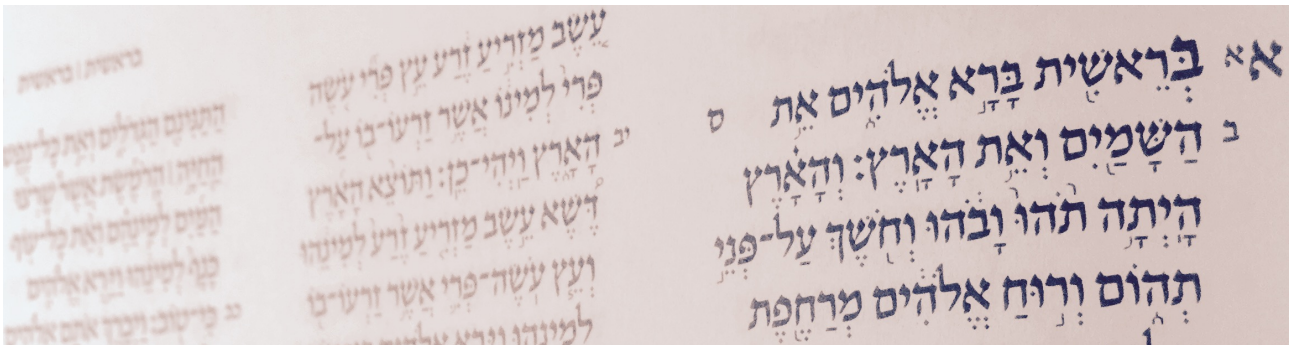 בראשית | בראשית
א א בְּרֵאשִׁ֖ית בָּרָ֣א אֱלֹהִ֑ים אֵ֥ת ס
ב הַשָּׁמַ֖יִם וְאֵ֥ת הָאָֽרֶץ׃ וְהָאָ֗רֶץ
הָיְתָ֥ה תֹ֙הוּ֙ וָבֹ֔הוּ וְחֹ֖שֶׁךְ עַל־פְּנֵ֣י
תְה֑וֹם וְר֣וּחַ אֱלֹהִ֔ים מְרַחֶ֖פֶת
עֵ֚שֶׂב מַזְרִ֣יעַ זֶ֔רַע עֵ֣ץ פְּרִ֞י עֹ֤שֶׂה
פְּרִי֙ לְמִינ֔וֹ אֲשֶׁ֥ר זַרְעוֹ־ב֖וֹ עַל־
יב הָאָ֑רֶץ וַֽיְהִי־כֵֽן׃ וַתּוֹצֵ֨א הָאָ֜רֶץ
דֶּ֠שֶׁא עֵ֣שֶׂב מַזְרִ֤יעַ זֶ֙רַע֙ לְמִינֵ֔הוּ
וְעֵ֧ץ עֹֽשֶׂה־פְּרִ֛י אֲשֶׁ֥ר זַרְעוֹ־ב֖וֹ
לְמִינֵ֑הוּ וַיַּ֥רְא
הַתַּנִּינִ֖ם הַגְּדֹלִ֑ים וְאֵ֣ת כָּל־
הַֽחַיָּ֣ה ׀ הָֽרֹמֶ֡שֶׂת אֲשֶׁר֩
הַמַּ֜יִם לְמִֽינֵהֶ֗ם וְאֵ֨ת כָּל־
כָּנָף֙ לְמִינֵ֔הוּ וַיַּ֥רְא אֱלֹהִ֖ים
כב כִּי־טֽוֹב׃ וַיְבָ֧רֶךְ אֹתָ֛ם אֱלֹהִ֖ים